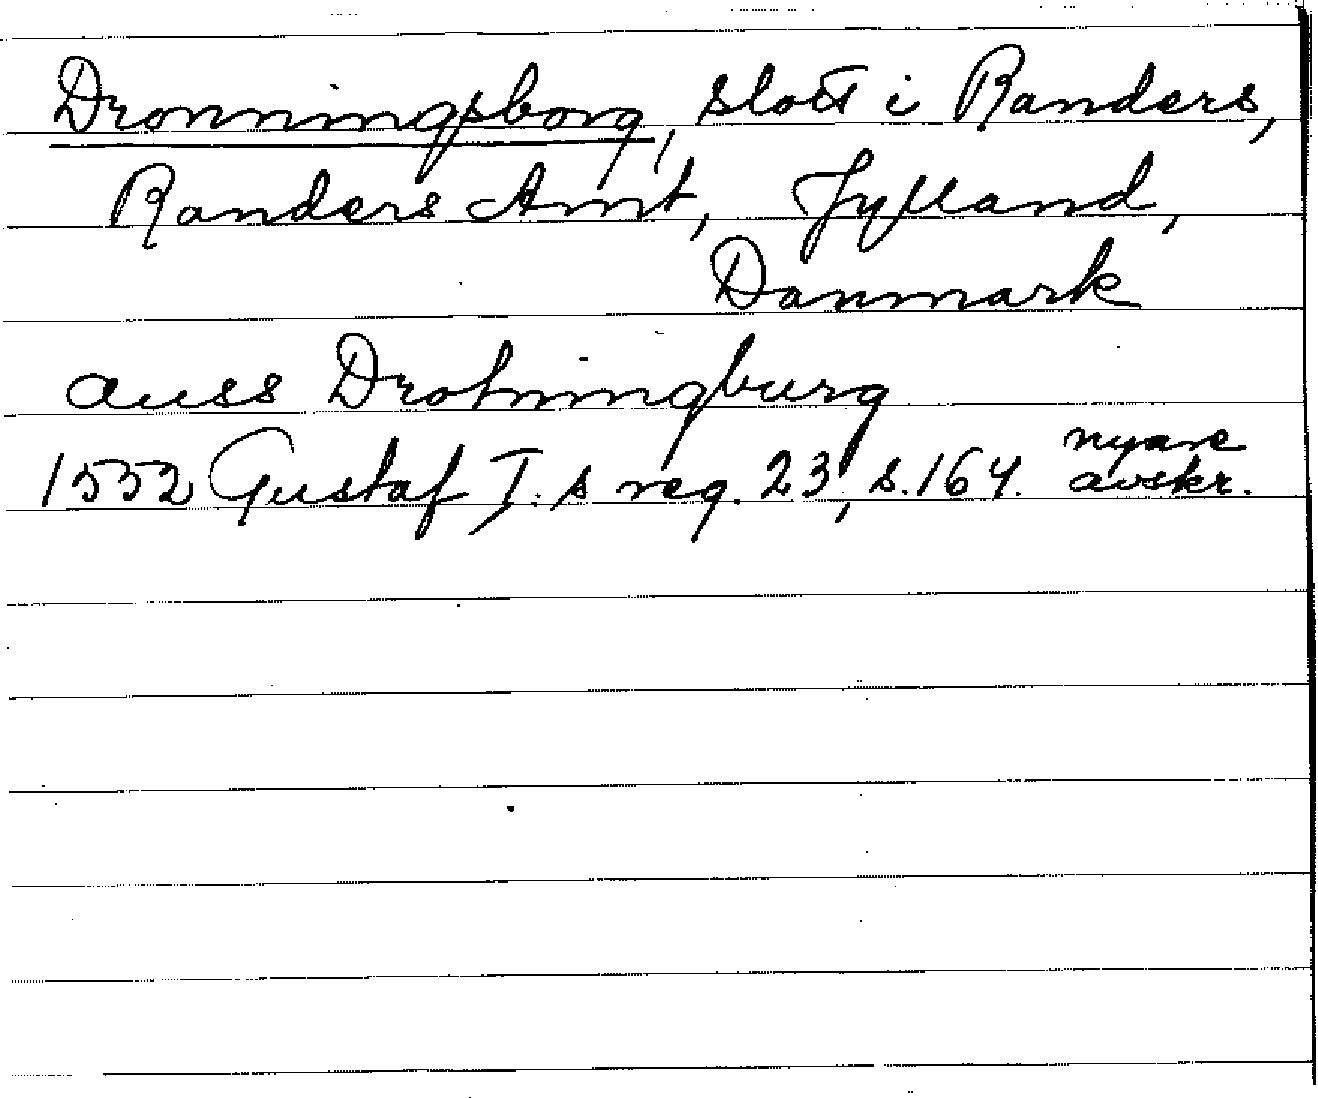 Dronningsborg, slott i Randers,
Randers Amt, Jylland,
Danmark
auss Drotningburg
1552 Gustaf I:s reg. 23, s. 164. nyare avskr.